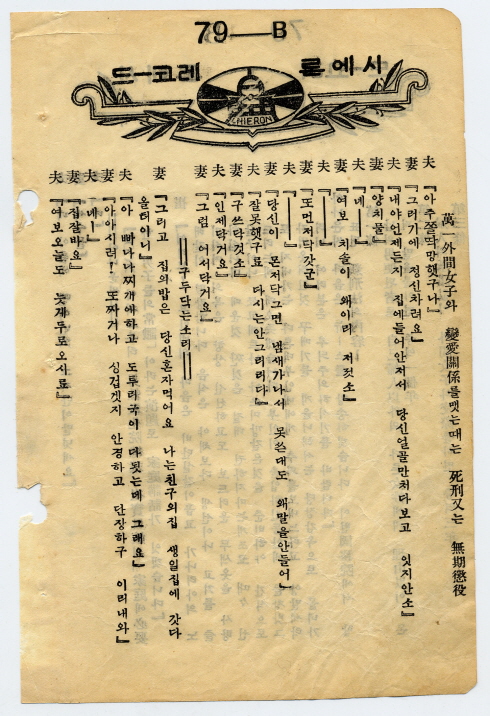 79—B
시에론 레코—드
CHIERON
萬一外間女子와 戀愛關係를맷는때는 死刑又는 無期懲役
夫『아주쫄딱망햇구나』
妻『그러기에 정신차려요』
夫『내야언제든지 집에들어안저서 당신얼골만처다보고 잇지안소』
妻『양치물』
夫『네—』
妻『여보 치솔이 왜이리 저젓소』
夫『——』
妻『또먼저닥갓군』
夫『——』
妻『당신이 몬저닥그면 냄새가나서 못쓴대도 왜말을안들어』
夫『잘못햇구료 다시는안그리리다』
妻『구쓰닥것소』
夫『인제닥거요』
妻『그럼 어서닥거요』
══구두닥는소리══
妻『그리고 집의밥은 당신혼자먹어요 나는친구의집 생일집에 갓다
올터이니』
夫『아 빠나나찌개에하고 도투리국이 다됫는데 그래요』
妻『아아시려! 또짜거나 싱겁겟지 안경하고 단장하구 이리내와』
夫『네—』
妻『집잘바요』
夫『여보오늘도 늣게두로오시료』